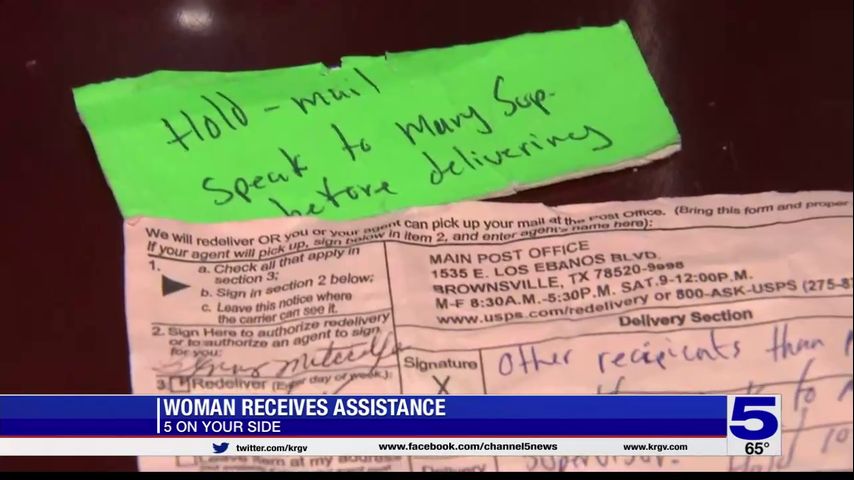 Hold - mail
Speak to Mary Sup.
before delivering
We will redeliver OR you or your agent can pick up your mail at the Post Office. (Bring this form and proper
If your agent will pick up, sign below in item 2, and enter agent's name here):
1.
a. Check all that apply in section 3;
b. Sign in section 2 below;
c. Leave this notice where the carrier can see it.
2. Sign Here to authorize redelivery
or to authorize an agent to sign
for you:
3. Redeliver (Enter day of week):
MAIN POST OFFICE
1535 E. LOS EBANOS BLVD.
BROWNSVILLE, TX 78520-9998
M-F 8:30A.M.-5:30P.M. SAT.9-12:00P.M.
www.usps.com/redelivery or 800-ASK-USPS (275-87
Delivery Section
Signature
X
Other recipients than
to
supervisor. Hold
Leave item at my address
Delivery
WOMAN RECEIVES ASSISTANCE
5 ON YOUR SIDE
5
65°
twitter.com/krgv
www.facebook.com/channel5news
www.krgv.com